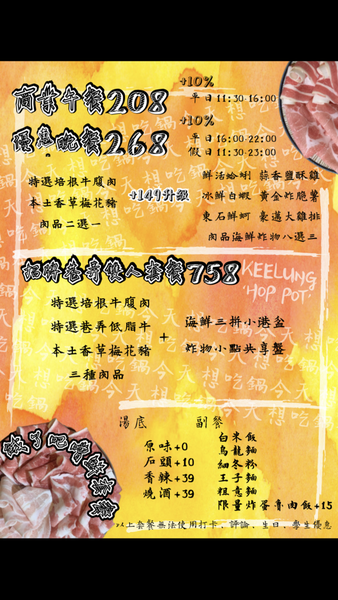 商業午餐208
+10%
平日11:30-16:00
優惠晚餐268
+10%
平日16:00-22:00
假日11:30-23:00
特選培根牛腹肉
本土香草梅花豬
肉品二選一
+149升級
鮮活蛤蜊 蒜香鹽酥雞
冰鮮白蝦 黃金炸脆薯
東石鮮蚵 豪邁大雞排
肉品海鮮炸物八選三
招牌巷哥雙人套餐758
KEELUNG
'HOP POT'
特選培根牛腹肉
特選巷弄低脂牛
本土香草梅花豬
三種肉品
+
海鮮三拼小港盆
炸物小點共享盤
今天想吃鍋
湯底
原味+0
石頭+10
香辣+39
燒酒+39
副餐
白米飯
烏龍麵
細冬粉
王子麵
粗意麵
限量炸蛋魯肉飯+15
以上套餐無法使用打卡、評論、生日、學生優惠